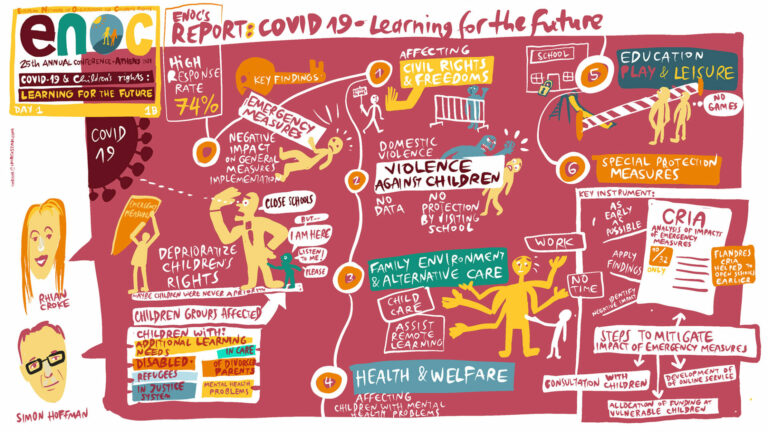 EUROPEAN NETWORK OF OMBUDSPERSONS FOR CHILDREN
enoc
25th ANNUAL CONFERENCE - ATHENS 2021
COVID-19 & Children's rights:
LEARNING FOR THE FUTURE
DAY 1
1B
COVID
19
RHIAN
CROKE
SIMON HOFFMAN
ENOC'S
REPORT: COVID 19 - Learning for the Future
HIGH
RESPONSE
RATE
74%
KEY FINDINGS
EMERGENCY
MEASURES
NEGATIVE
IMPACT
ON GENERAL
MEASURES
IMPLEMENTATION
EMERGENCY
MEASURES
CLOSE SCHOOLS
BUT...
I AM HERE
LISTEN
TO ME!
PLEASE
DEPRIORATIZE
CHILDREN'S
RIGHTS
MAYBE CHILDREN WERE NEVER A PRIORITY
CHILDREN GROUPS AFFECTED
CHILDREN WITH:
ADDITIONAL LEARNING
NEEDS
DISABLED
REFUGEES
IN JUSTICE
SYSTEM
IN CARE
OF DIVORCED
PARENTS
MENTAL HEALTH
PROBLEMS
1
AFFECTING
CIVIL RIGHTS
& FREEDOMS
2
DOMESTIC
VIOLENCE
VIOLENCE
AGAINST CHILDREN
NO
DATA
NO
PROTECTION
BY VISITING
SCHOOL
3
FAMILY ENVIRONMENT
& ALTERNATIVE CARE
CHILD
CARE
ASSIST
REMOTE
LEARNING
WORK
NO
TIME
4
HEALTH & WELFARE
AFFECTING
CHILDREN WITH MENTAL
HEALTH PROBLEMS
SCHOOL
5
EDUCATION
PLAY & LEISURE
NO
GAMES
6
SPECIAL PROTECTION
MEASURES
KEY INSTRUMENT:
AS
EARLY
AS
POSSIBLE
APPLY
FINDINGS
IDENTIFY
NEGATIVE IMPACT
CRIA
ANALYSIS OF IMPACTS
OF EMERGENCY
MEASURES
10/32
ONLY
FLANDRES
CRIA
HELPED TO
OPEN SCHOOLS
EARLIER
STEPS TO MITIGATE
IMPACT OF EMERGENCY MEASURES
CONSULTATION
WITH CHILDREN
DEVELOPMENT OF
OF ONLINE SERVICE
ALLOCATION OF FUNDING AT
VULNERABLE CHILDREN